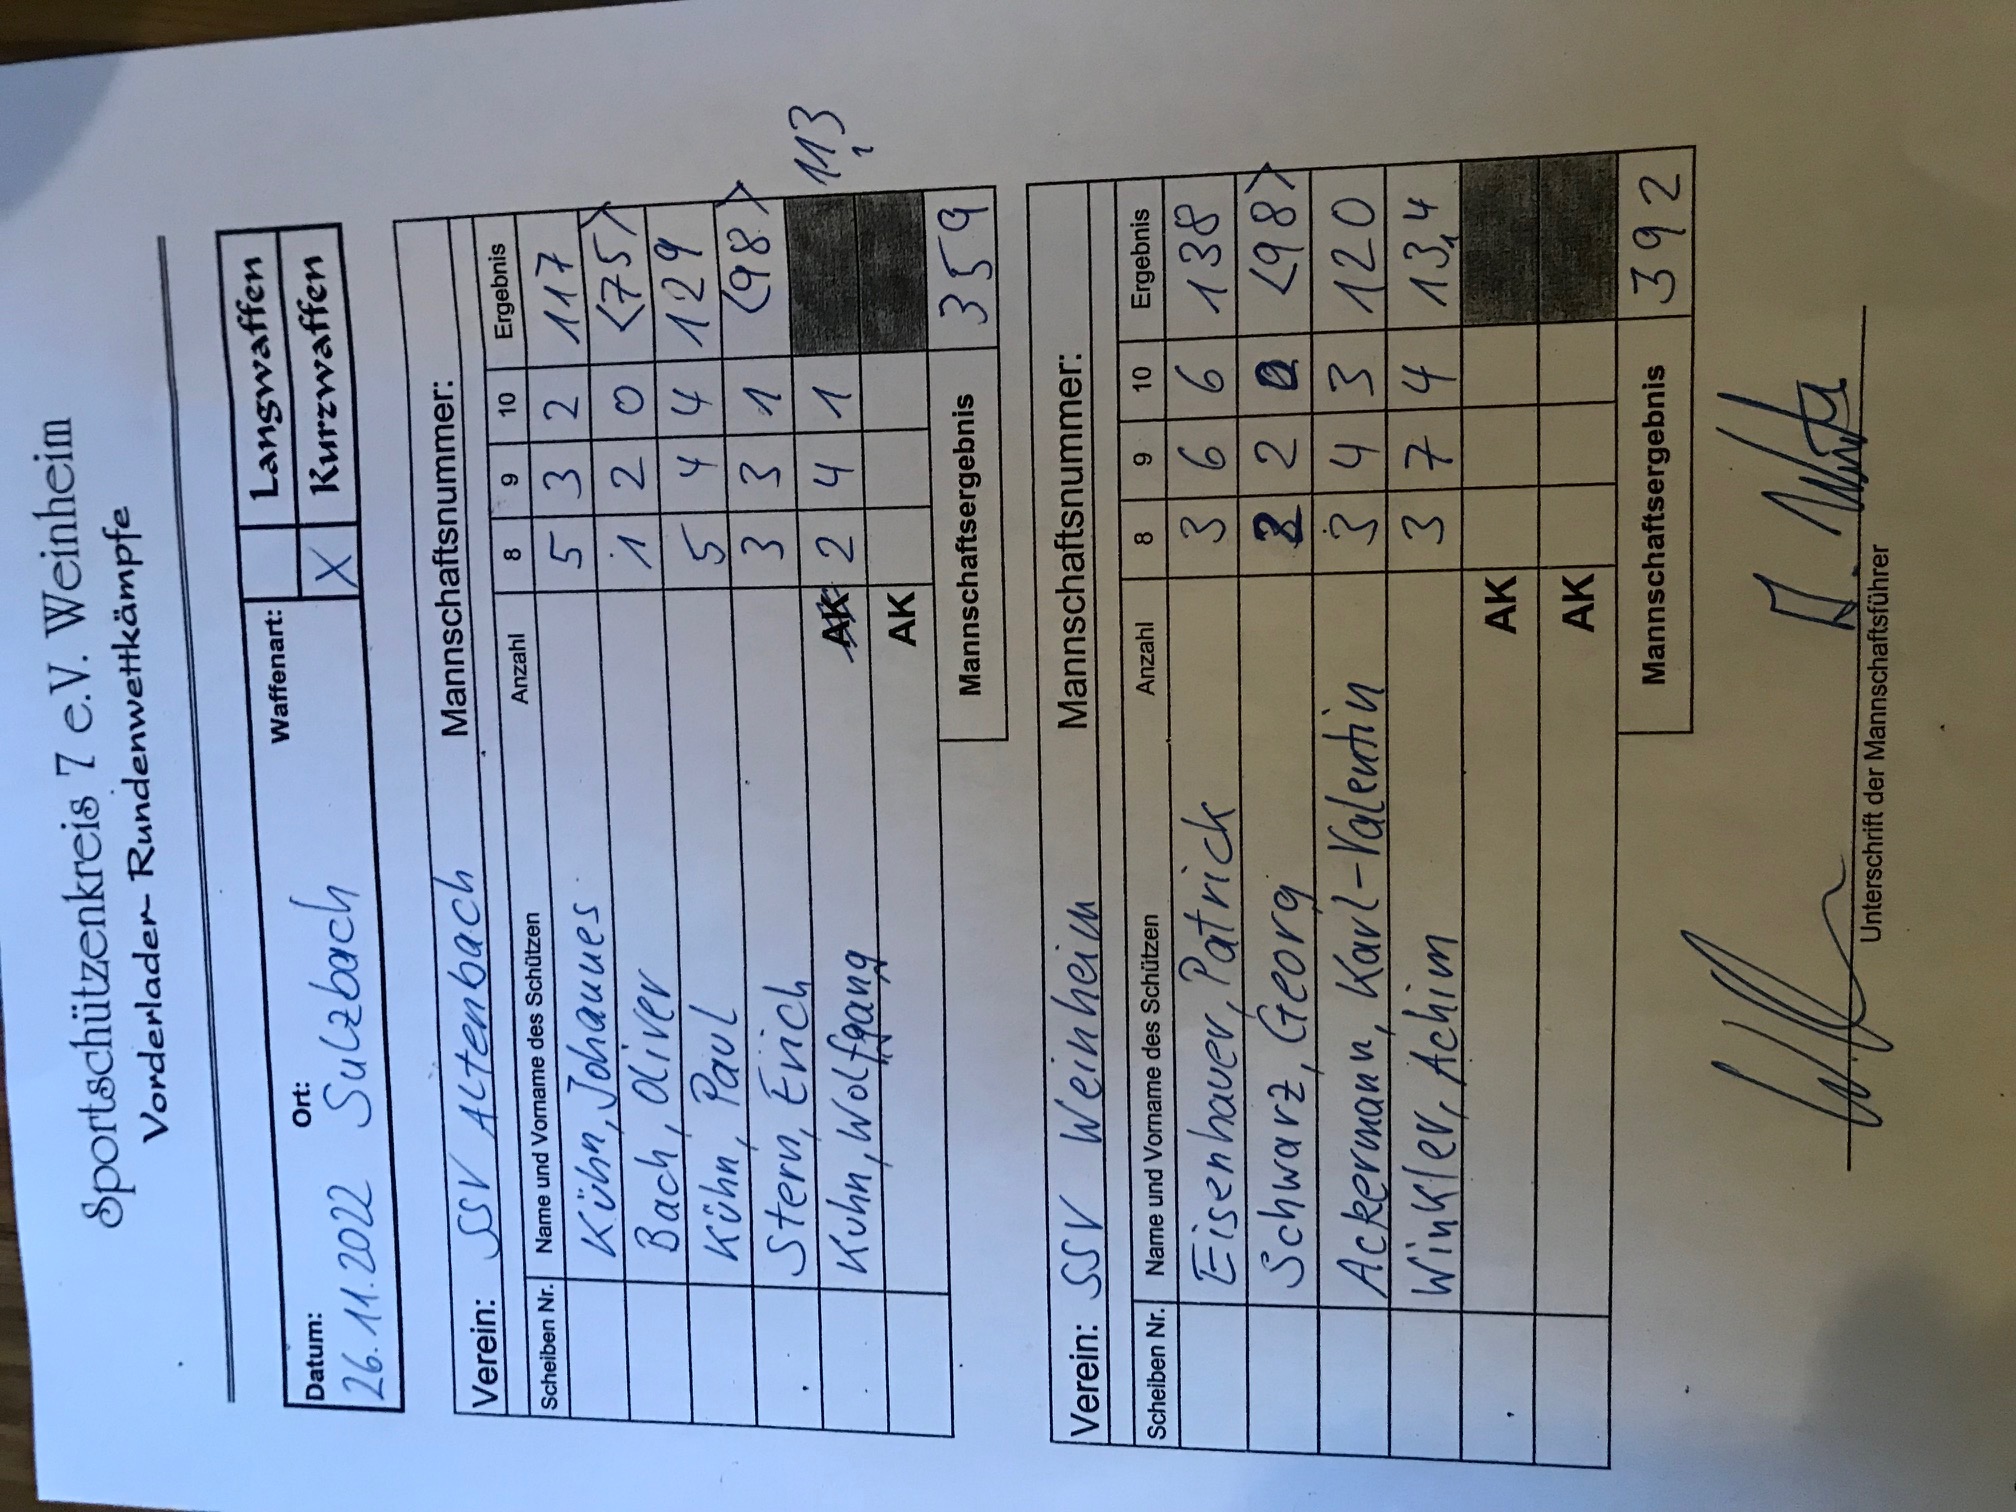 Sportschützenkreis 7 e.V. Weinheim
Vorderlader-Rundenwettkämpfe
Datum: Ort: Waffenart: Langwaffen
26.11.2022 Sulzbach X Kurzwaffen
Verein: SSV Altenbach Mannschaftsnummer:
Scheiben Nr. Name und Vorname des Schützen Anzahl 8 9 10 Ergebnis
Kühn, Johannes 5 3 2 117
Bach, Oliver 1 2 0 <75>
Kühn, Paul 5 4 4 129
Stern, Erich 3 3 1 <98>
Kuhn, Wolfgang AK 2 4 1 113
AK
Mannschaftsergebnis 359
Verein: SSV Weinheim Mannschaftsnummer:
Scheiben Nr. Name und Vorname des Schützen Anzahl 8 9 10 Ergebnis
Eisenhauer, Patrick 3 6 6 138
Schwarz, Georg 2 2 0 <98>
Ackermann, Karl-Valentin 3 4 3 120
Winkler, Achim 3 7 4 134
AK
AK
Mannschaftsergebnis 392
Unterschrift der Mannschaftsführer